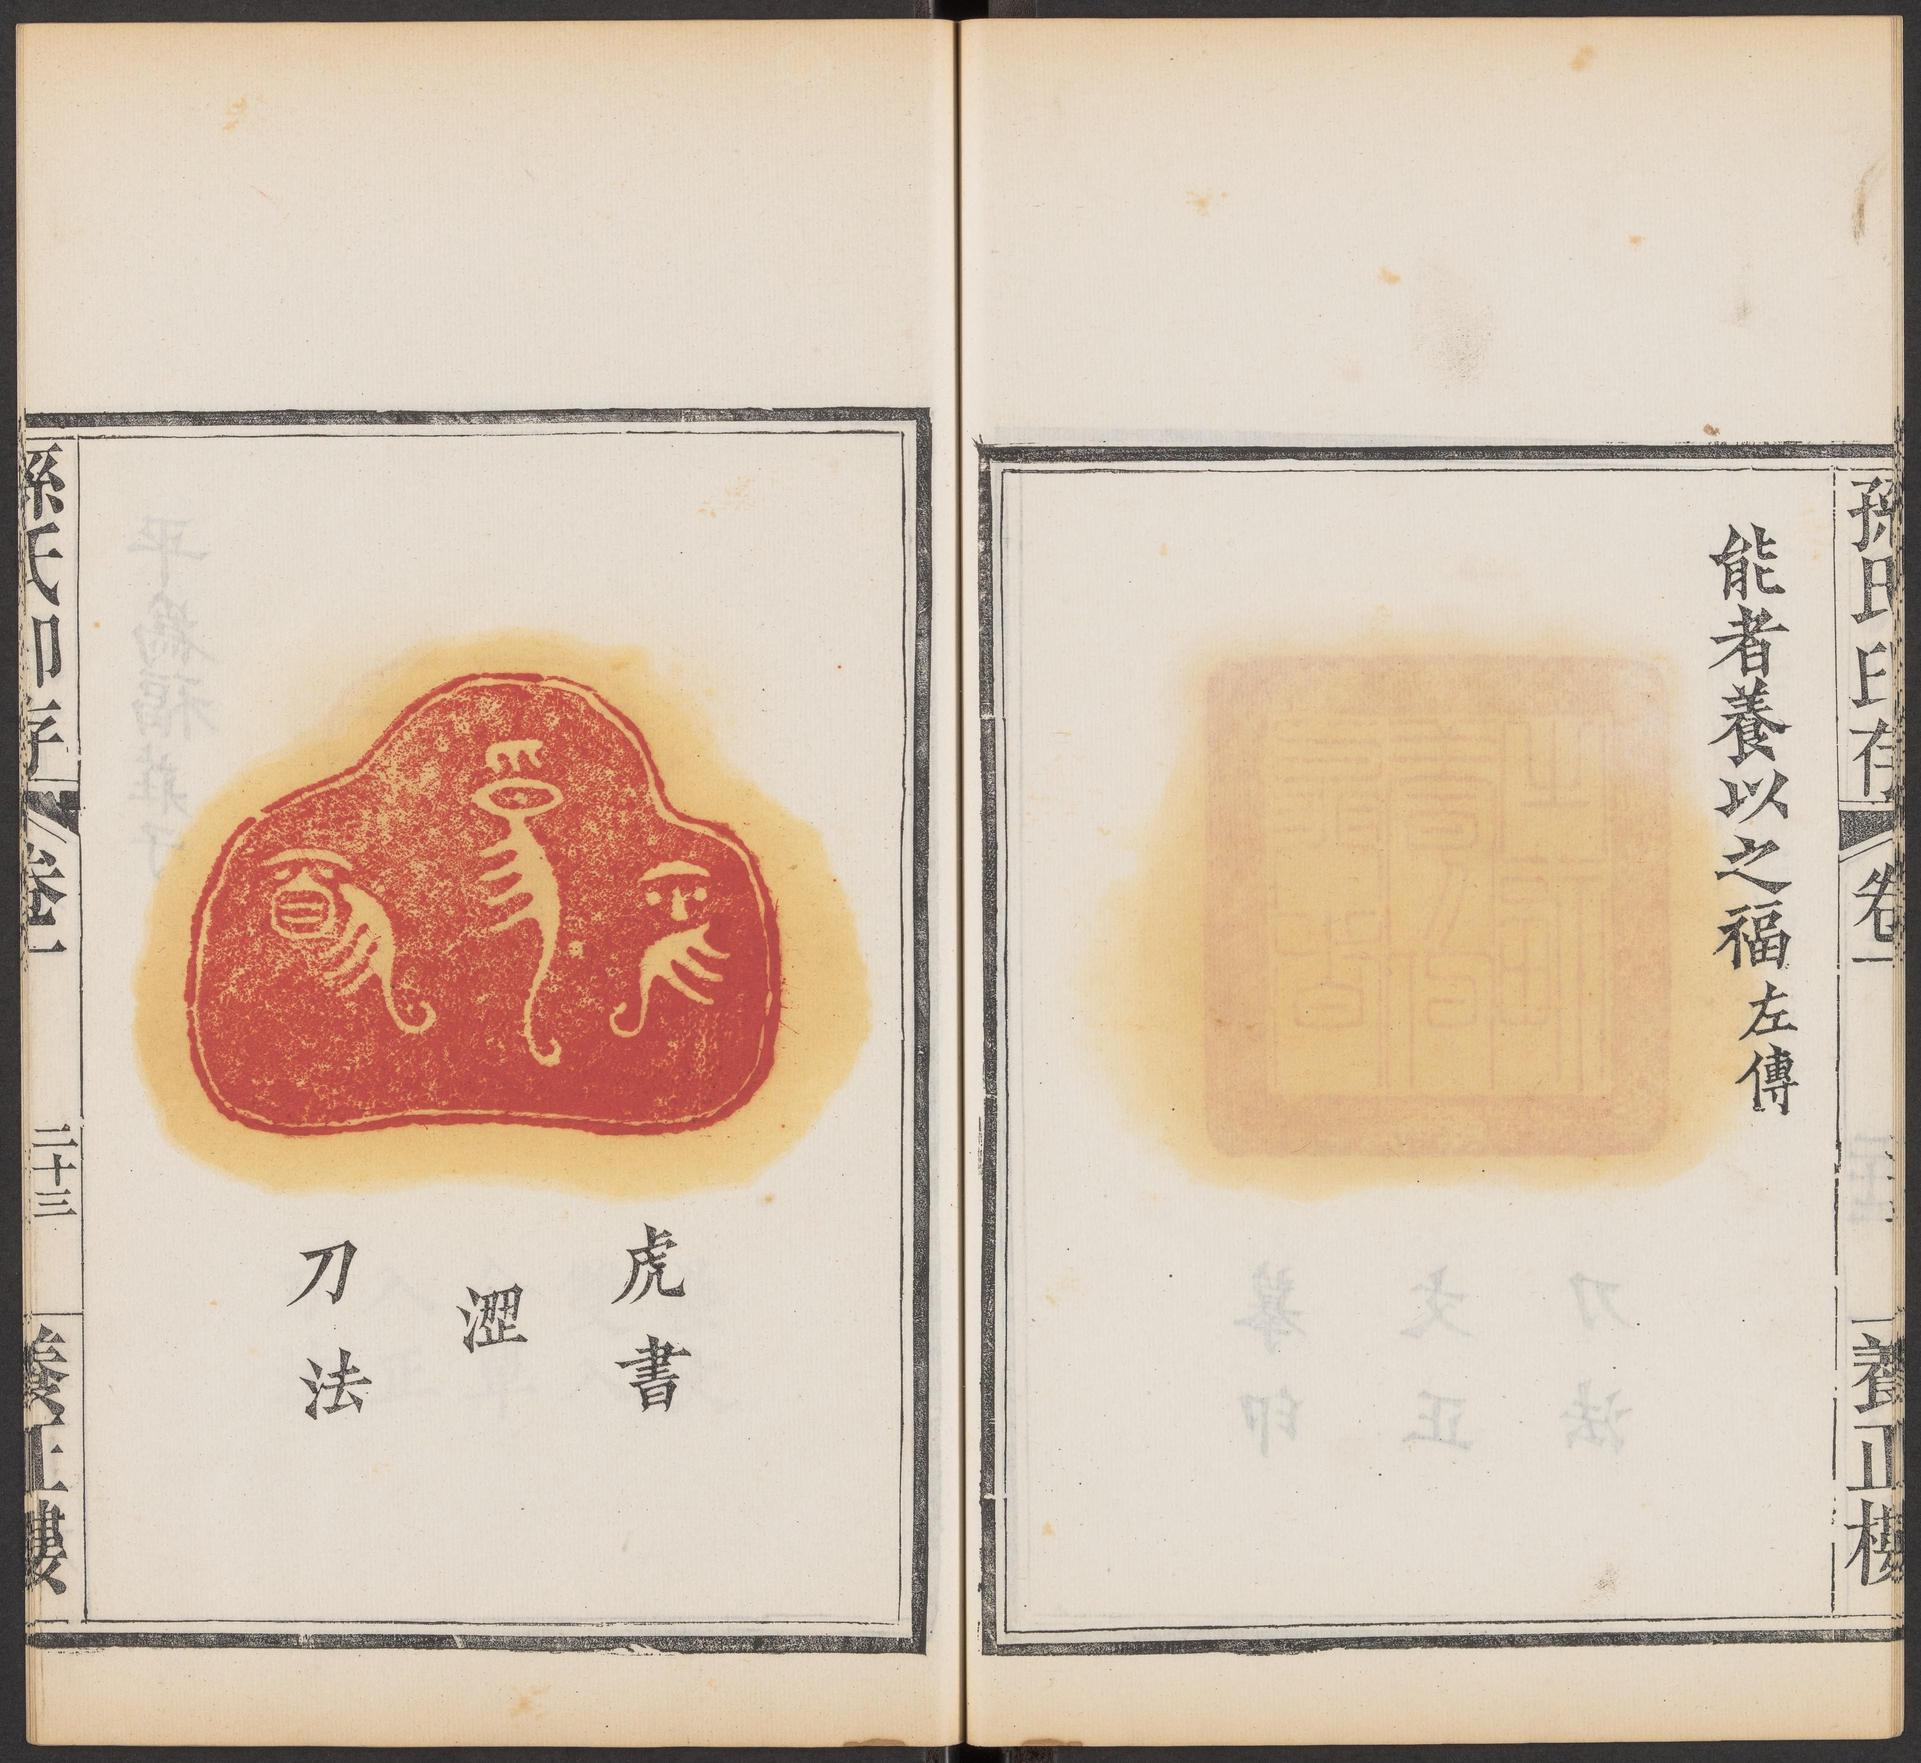 孫氏印存
卷一
養正樓
能者養以之福
左傳
虎書
澀
刀法
孫氏印存
卷一
二十三
養正樓